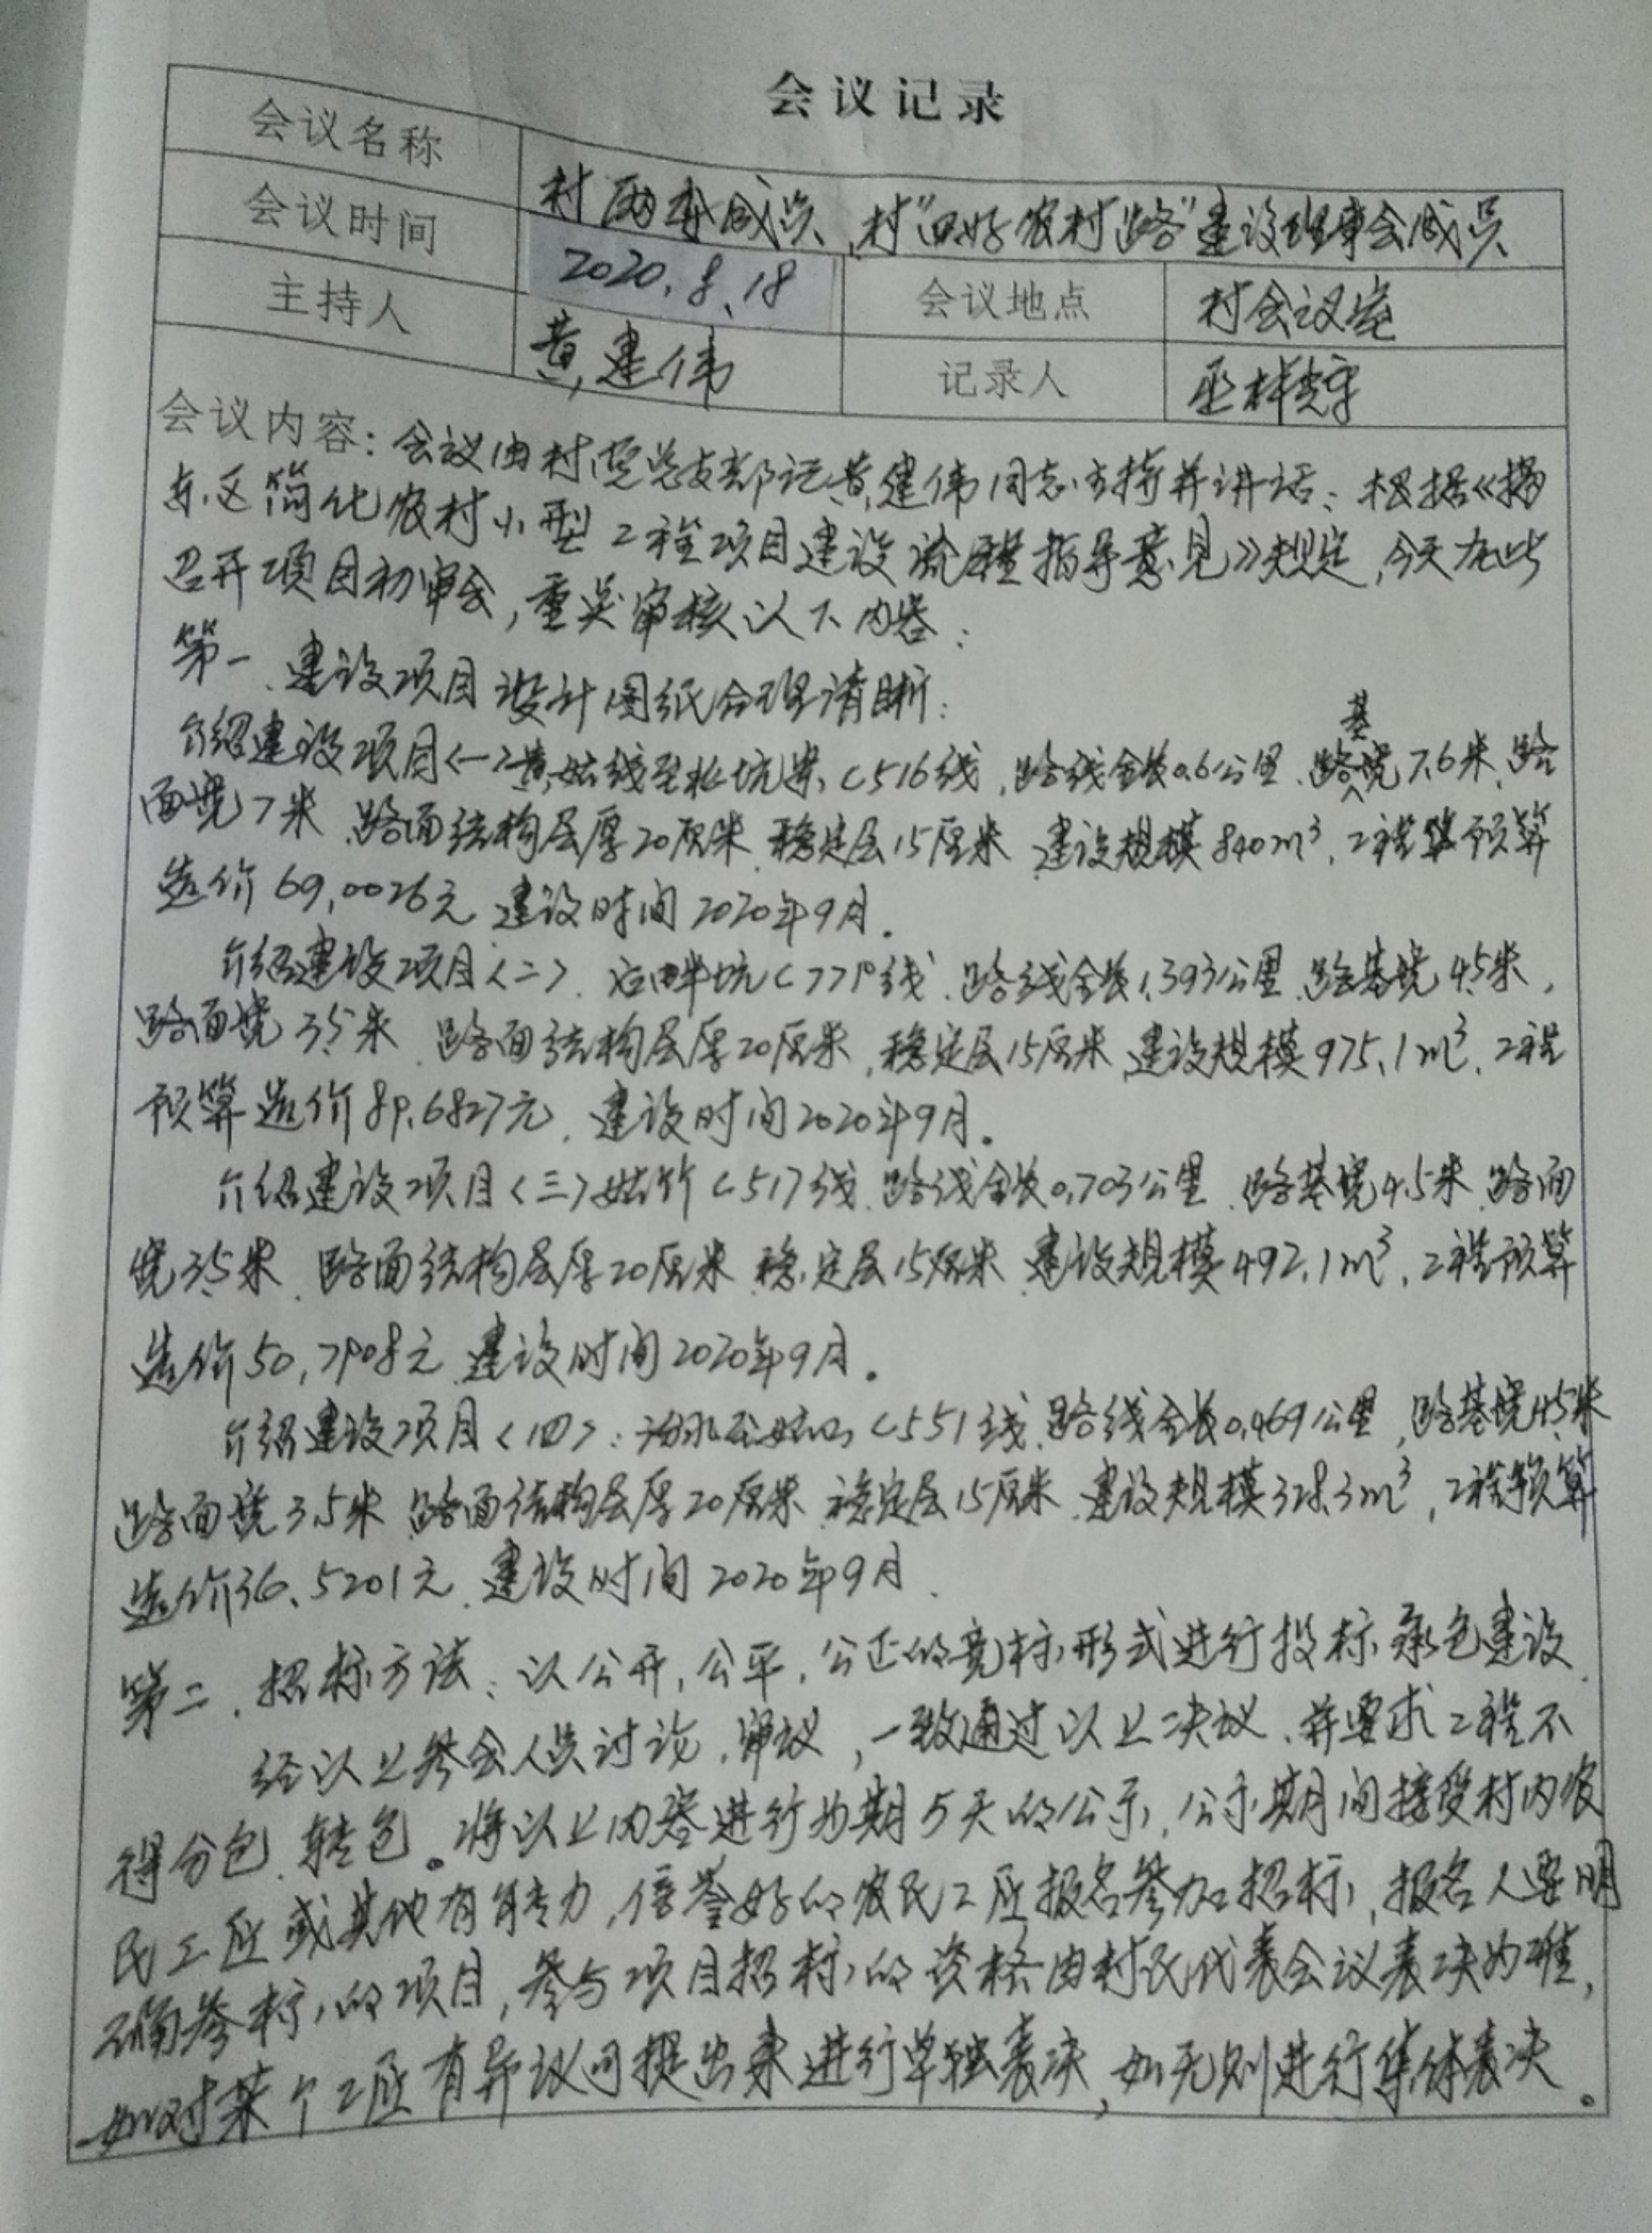 会议记录
会议名称 村两委成员、村“四好农村路”建设理事会成员
会议时间 2020.8.18 会议地点 村会议室
主持人 黄建伟 记录人
会议内容：会议由村党总支部书记黄建伟同志主持并讲话：根据《揭
东区简化农村小型工程项目建设流程指导意见》规定，今天在此
召开项目初审会，重点审核以下内容：
第一、建设项目设计图纸合理清晰：
介绍建设项目<一>黄姑线至 坑 C516线，路线全长0.6公里、路基宽7.6米、路
面宽7米、路面结构层厚20厘米、稳定层15厘米、建设规模840m³，工程预算
造价69.0026元、建设时间2020年9月。
介绍建设项目<二>、 坑C77 线、路线全长1.393公里、路基宽4.5米，
路面宽3.5米、路面结构层厚20厘米，稳定层15厘米、建设规模975.1m³、工程
预算造价89.6827元、建设时间2020年9月。
介绍建设项目<三>姑竹C517线、路线全长0.703公里、路基宽4.5米、路面
宽3.5米、路面结构层厚20厘米、稳定层15厘米、建设规模492.1m³，工程预算
造价50.7908元、建设时间2020年9月。
介绍建设项目<四>： 至姑山C551线、路线全长0.469公里，路基宽4.5米
路面宽3.5米、路面结构层厚20厘米、稳定层15厘米、建设规模328.3m³，工程预算
造价36.5201元、建设时间2020年9月、
第二、招标方法：以公开，公平，公正的竞标形式进行投标承包建设、
经以上参会人员讨论、审议，一致通过以上决议、并要求工程不
得分包、转包。将以上内容进行为期5天的公示，公示期间接受村内农
民工匠或其他有能力，信誉好的农民工匠报名参加招标，报名人要明
确参标的项目，参与项目招标的资格由村民代表会议表决为准，
如对某个工匠有异议可提出来进行单独表决，如无则进行集体表决。